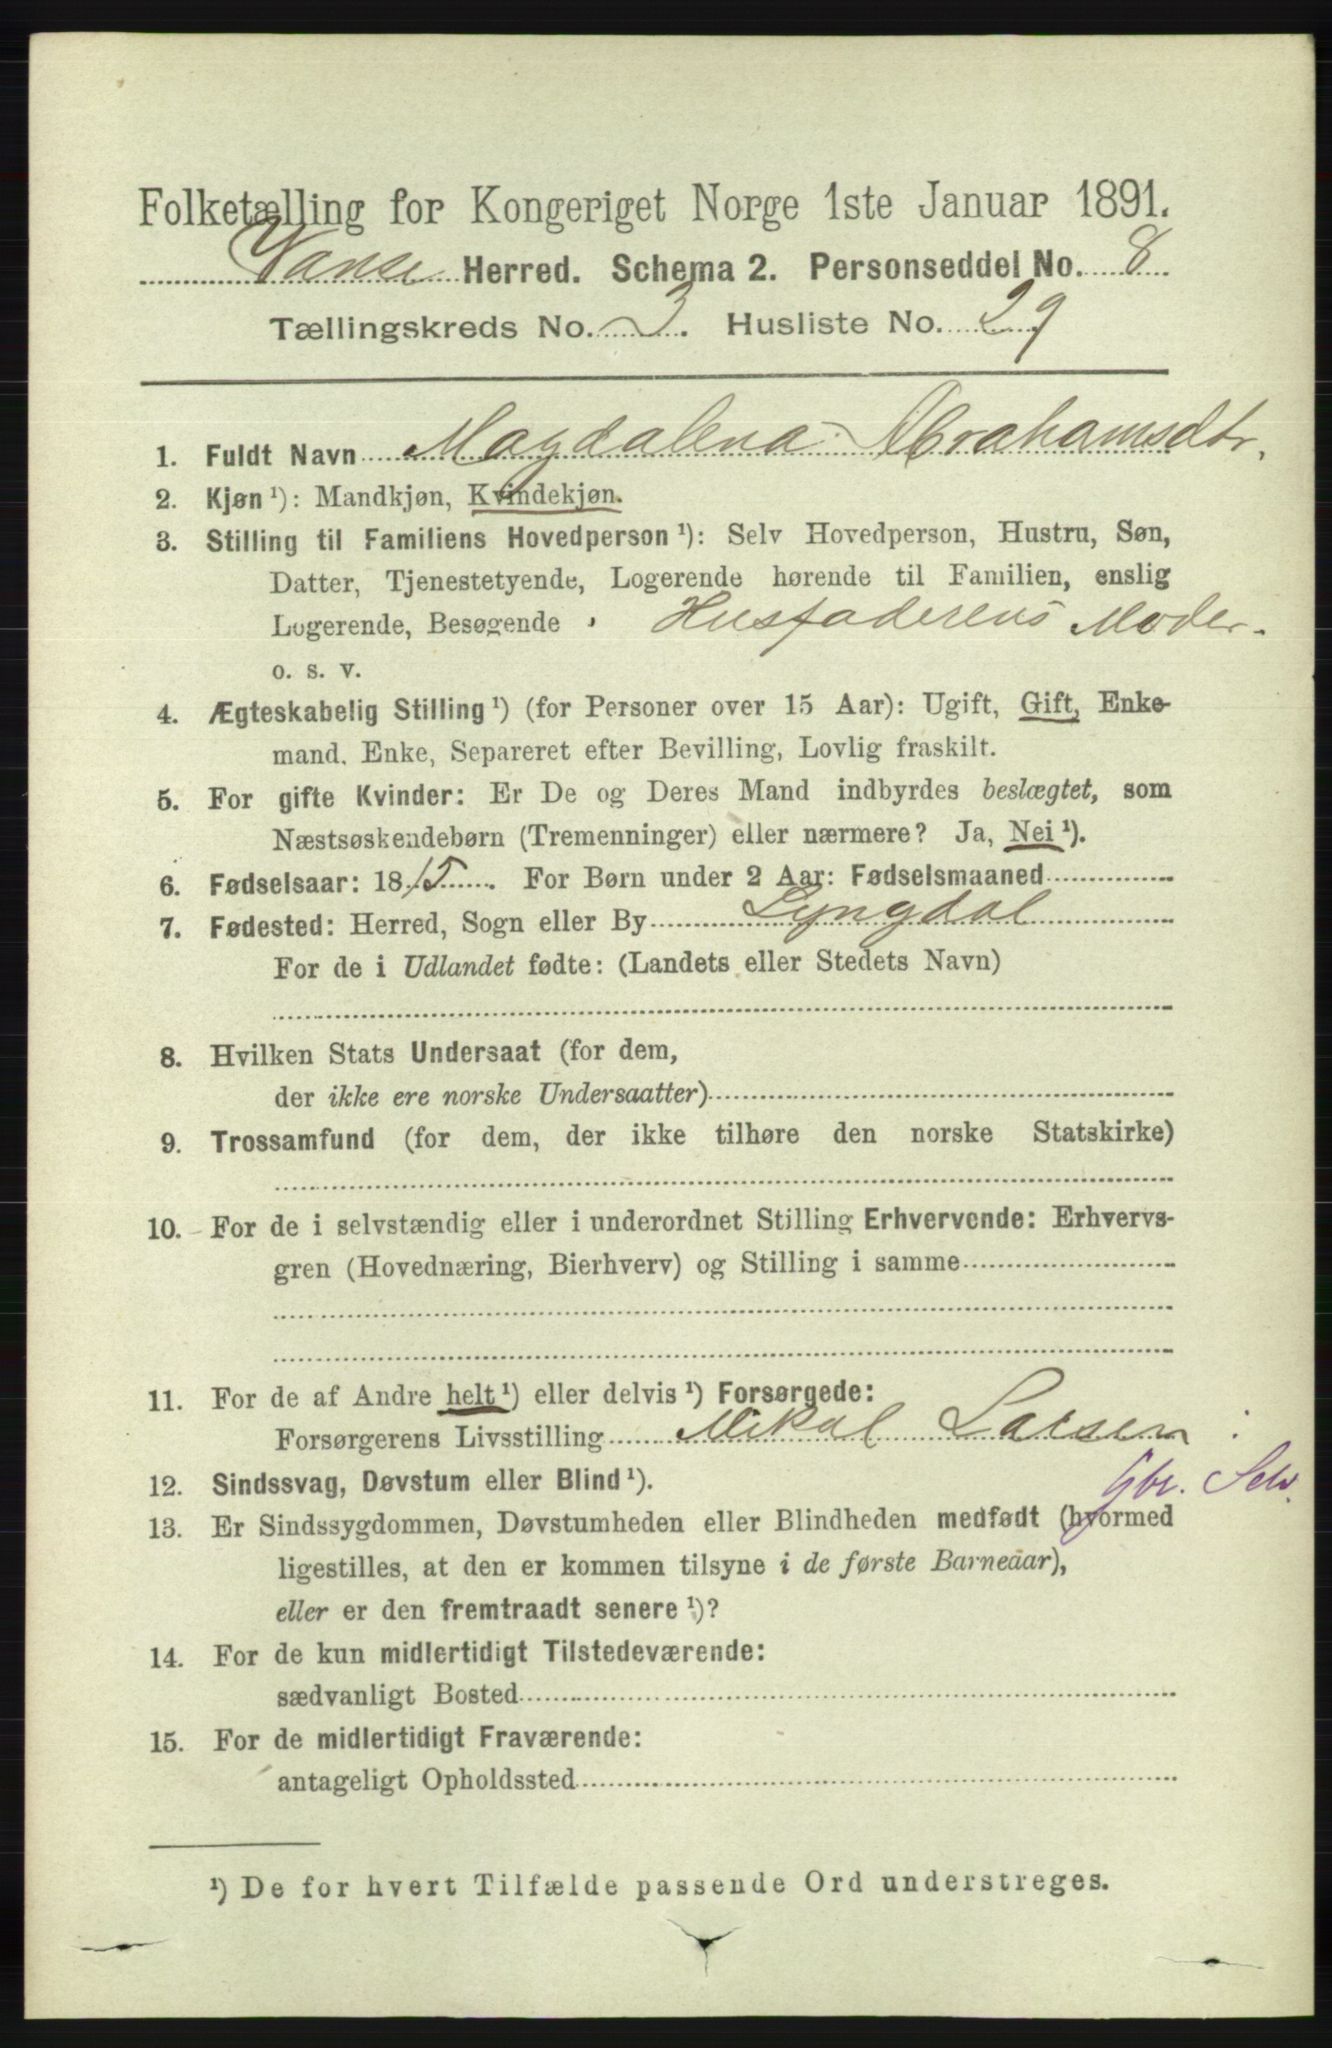 Folketælling for Kongeriget Norge 1ste Januar 1891.
Vanse Herred. Schema 2. Personseddel No. 8
Tællingskreds No. 3. Husliste No. 29
1. Fuldt Navn Magdalena Abrahamsdtr.
2. Kjøn ¹): Mandkjøn, Kvindekjøn.
3. Stilling til Familiens Hovedperson ¹): Selv Hovedperson, Hustru, Søn,
Datter, Tjenestetyende, Logerende hørende til Familien, enslig
Logerende, Besøgende Husfaderens Moder.
o. s. v.
4. Ægteskabelig Stilling ¹) (for Personer over 15 Aar): Ugift, Gift, Enke-
mand, Enke, Separeret efter Bevilling, Lovlig fraskilt.
5. For gifte Kvinder: Er De og Deres Mand indbyrdes beslægtet, som
Næstsøskendebørn (Tremenninger) eller nærmere? Ja, Nei ¹).
6. Fødselsaar: 1815. For Børn under 2 Aar: Fødselsmaaned
7. Fødested: Herred, Sogn eller By Lyngdal
For de i Udlandet fødte: (Landets eller Stedets Navn)
8. Hvilken Stats Undersaat (for dem,
der ikke ere norske Undersaatter)
9. Trossamfund (for dem, der ikke tilhøre den norske Statskirke)
10. For de i selvstændig eller i underordnet Stilling Erhvervende: Erhvervs-
gren (Hovednæring, Bierhverv) og Stilling i samme
11. For de af Andre helt ¹) eller delvis ¹) Forsørgede:
Forsørgerens Livsstilling Mikal Larsen
Gbr. Selv.
12. Sindssvag, Døvstum eller Blind ¹).
13. Er Sindssygdommen, Døvstumheden eller Blindheden medfødt (hvormed
ligestilles, at den er kommen tilsyne i de første Barneaar),
eller er den fremtraadt senere ¹)?
14. For de kun midlertidigt Tilstedeværende:
sædvanligt Bosted
15. For de midlertidigt Fraværende:
antageligt Opholdssted
¹) De for hvert Tilfælde passende Ord understreges.